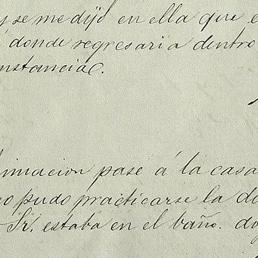 y se me dijo en ella que e
donde regresaria dentro
nstancia.
imacion pase á la casa
no pudo practicarse la d
Sr. estaba en el baño. do